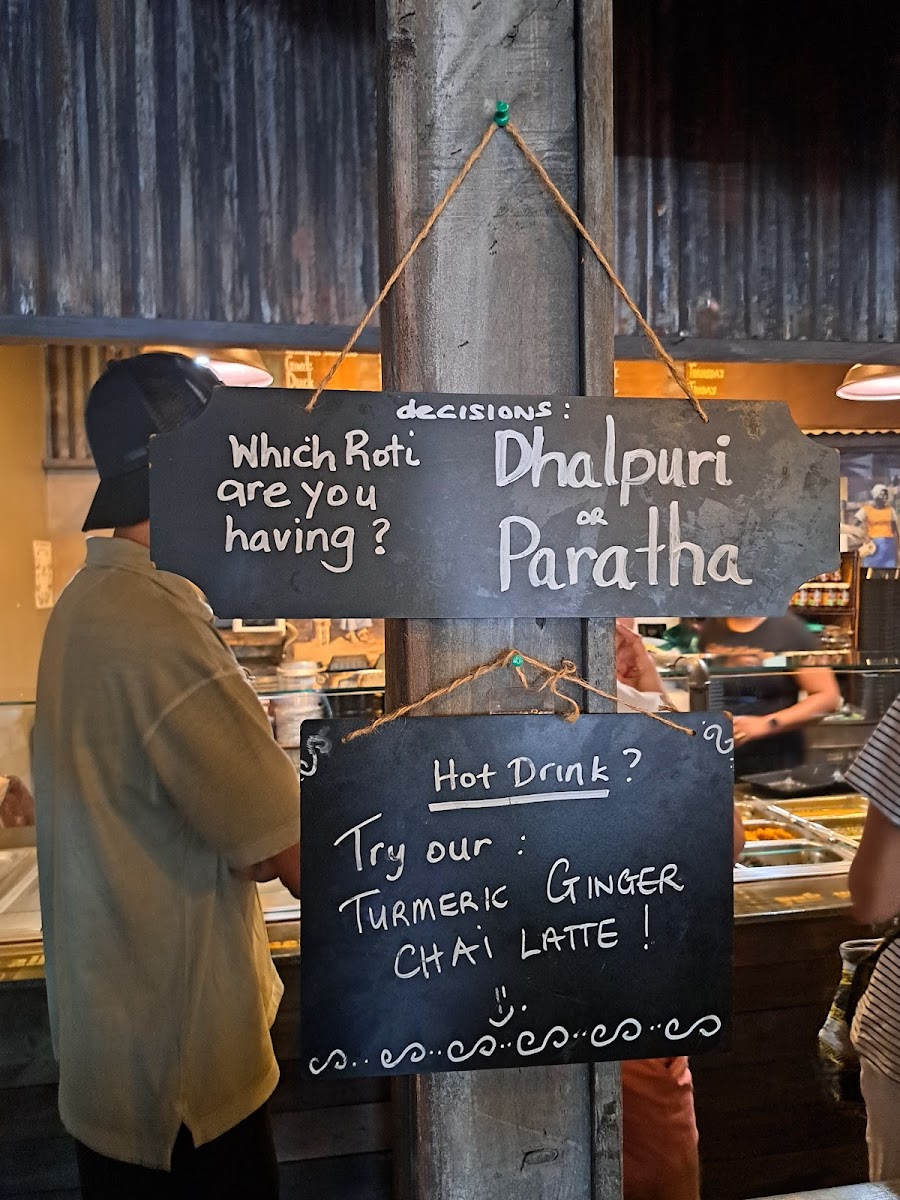 decisions:
Which Roti
are you
having?
Dhalpuri
OR
Paratha
Hot Drink?
Try our :
TURMERIC GINGER
CHAi LATTE!